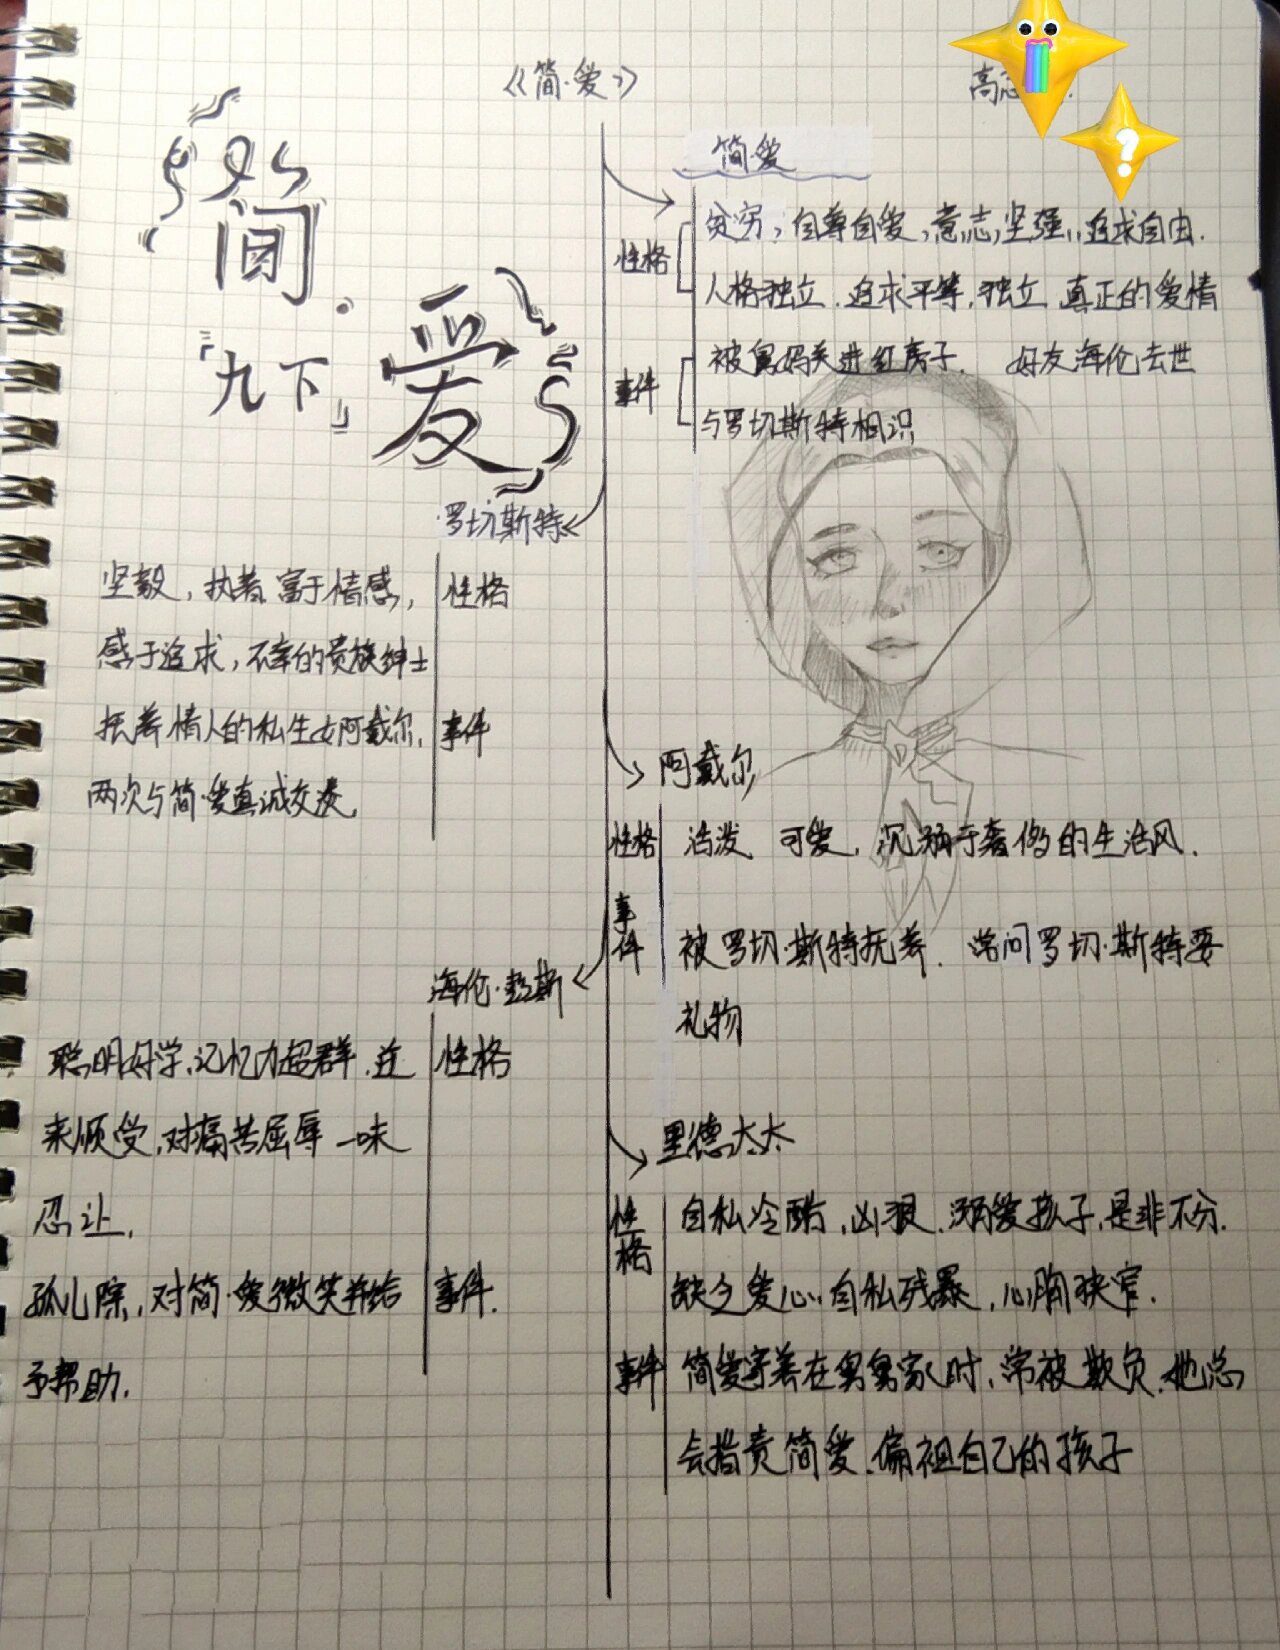 《简·爱》
高
简·爱
「九下」
简·爱
性格
贫穷,自尊自爱,意志坚强,追求自由.
人格独立.追求平等,独立 真正的爱情
事件
被舅妈关进红房子. 好友海伦去世
与罗切斯特相识
罗切斯特
坚毅,执着,富于情感,
性格
感于追求,不幸的贵族绅士
抚养情人的私生女阿戴尔,
事件
两次与简·爱真诚交谈
阿戴尔
性格
活泼 可爱,沉溺于奢侈的生活风.
事件
被罗切·斯特抚养. 常问罗切·斯特要
礼物
海伦·彭斯
聪明好学,记忆力超群.逆
性格
来顺受,对痛苦屈辱一味
忍让.
孤儿院,对简·爱微笑并给
事件.
予帮助.
里德太太
性格
自私冷酷,凶狠.溺爱孩子,是非不分.
缺乏爱心,自私残暴,心胸狭窄.
事件
简爱寄养在舅舅家时,常被欺负.她总
会指责简爱.偏袒自己的孩子
?